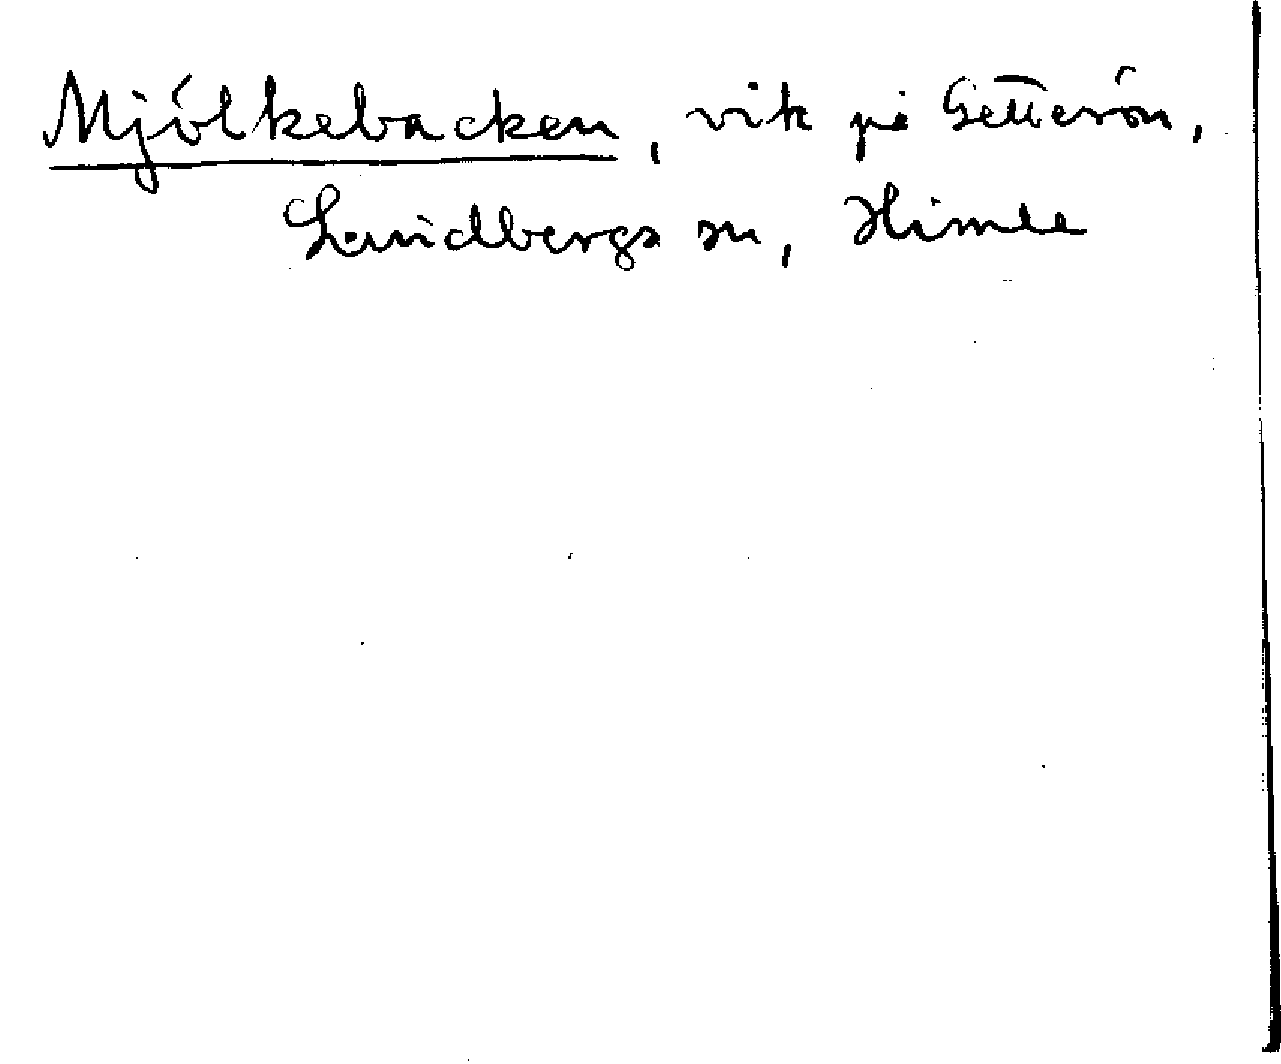 Mjölkebacken, vik på Getterön,
Lindbergs sn, Himle